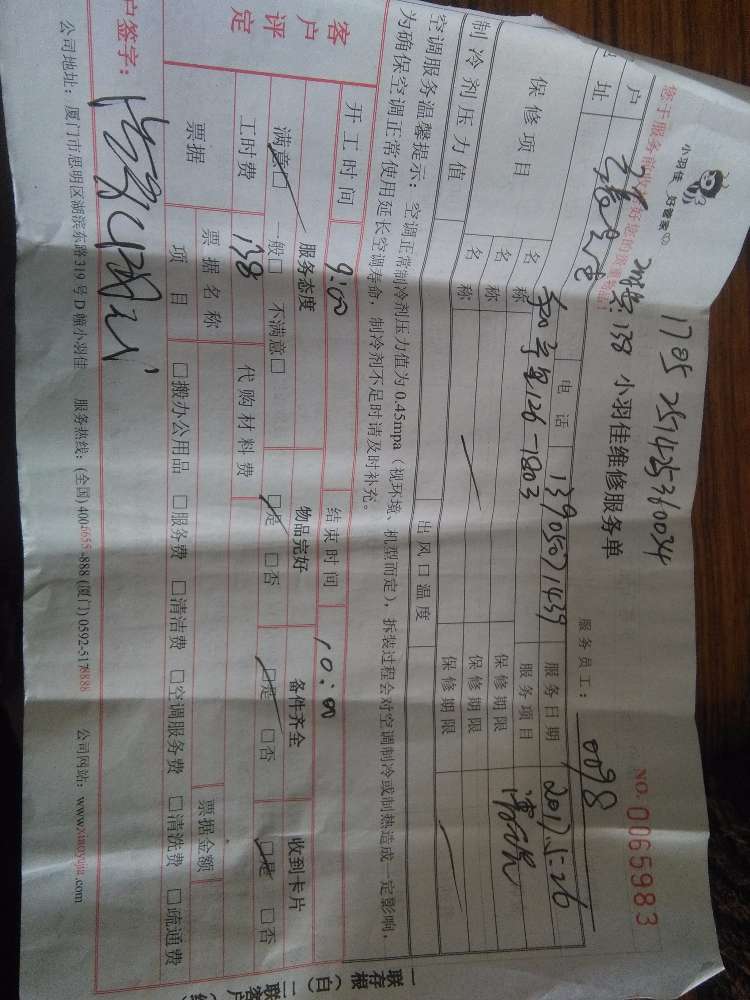 小羽佳 好管家
您于服务前收好您的贵重物品!
1705251425360034
138 小羽佳维修服务单
服务员工: 0098
NO. 0065983
户
电话 13905071439 服务日期 2017.5.26
址
126-1803 服务项目
保修项目 名称 保修期限
名称 保修期限
名称 保修期限
制冷剂压力值 出风口温度
空调服务温馨提示: 空调正常制冷剂压力值为 0.45mpa (视环境、机型而定), 拆装过程会对空调制冷或制热造成一定影响,
为确保空调正常使用延长空调寿命, 制冷剂不足时请及时补充。
开工时间 9:00 结束时间 10:00
客户评定
服务态度 物品完好 备件齐全 收到卡片
满意□ 一般□ 不满意□ □是 □否 □是 □否 □是 □否
工时费 138 代购材料费
票据 票据名称 票据金额
项目 □搬办公用品 □服务费 □清洁费 □空调服务费 □清洗费 □疏通费
户签字:
公司地址: 厦门市思明区湖滨东路319号D幢小羽佳 服务热线: (全国) 400-1655-888 (厦门) 0592-5178888 公司网站: www.xiaoyujia.com
一联存根 (白) 二联客户